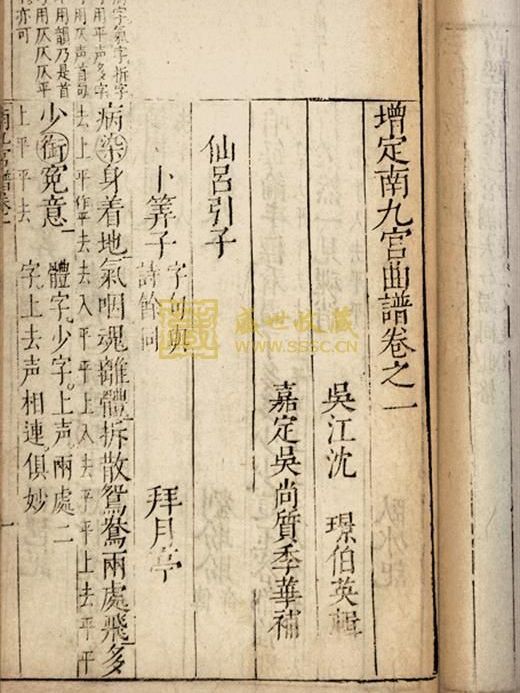 增定南九宮曲譜卷之一
吳江沈 璟伯英輯
嘉定吳尚質季華補
仙呂引子
卜筭子
字句與
詩餘同
拜月亭
病染身着地氣咽魂離體拆散鴛鴦兩處飛多
去上平作平去入平平上入去平平上去平平
少銜冤意
上平平去
體字少字上声兩處二
字上去声相連俱妙
一
盛世收藏
WWW.SSSC.CN